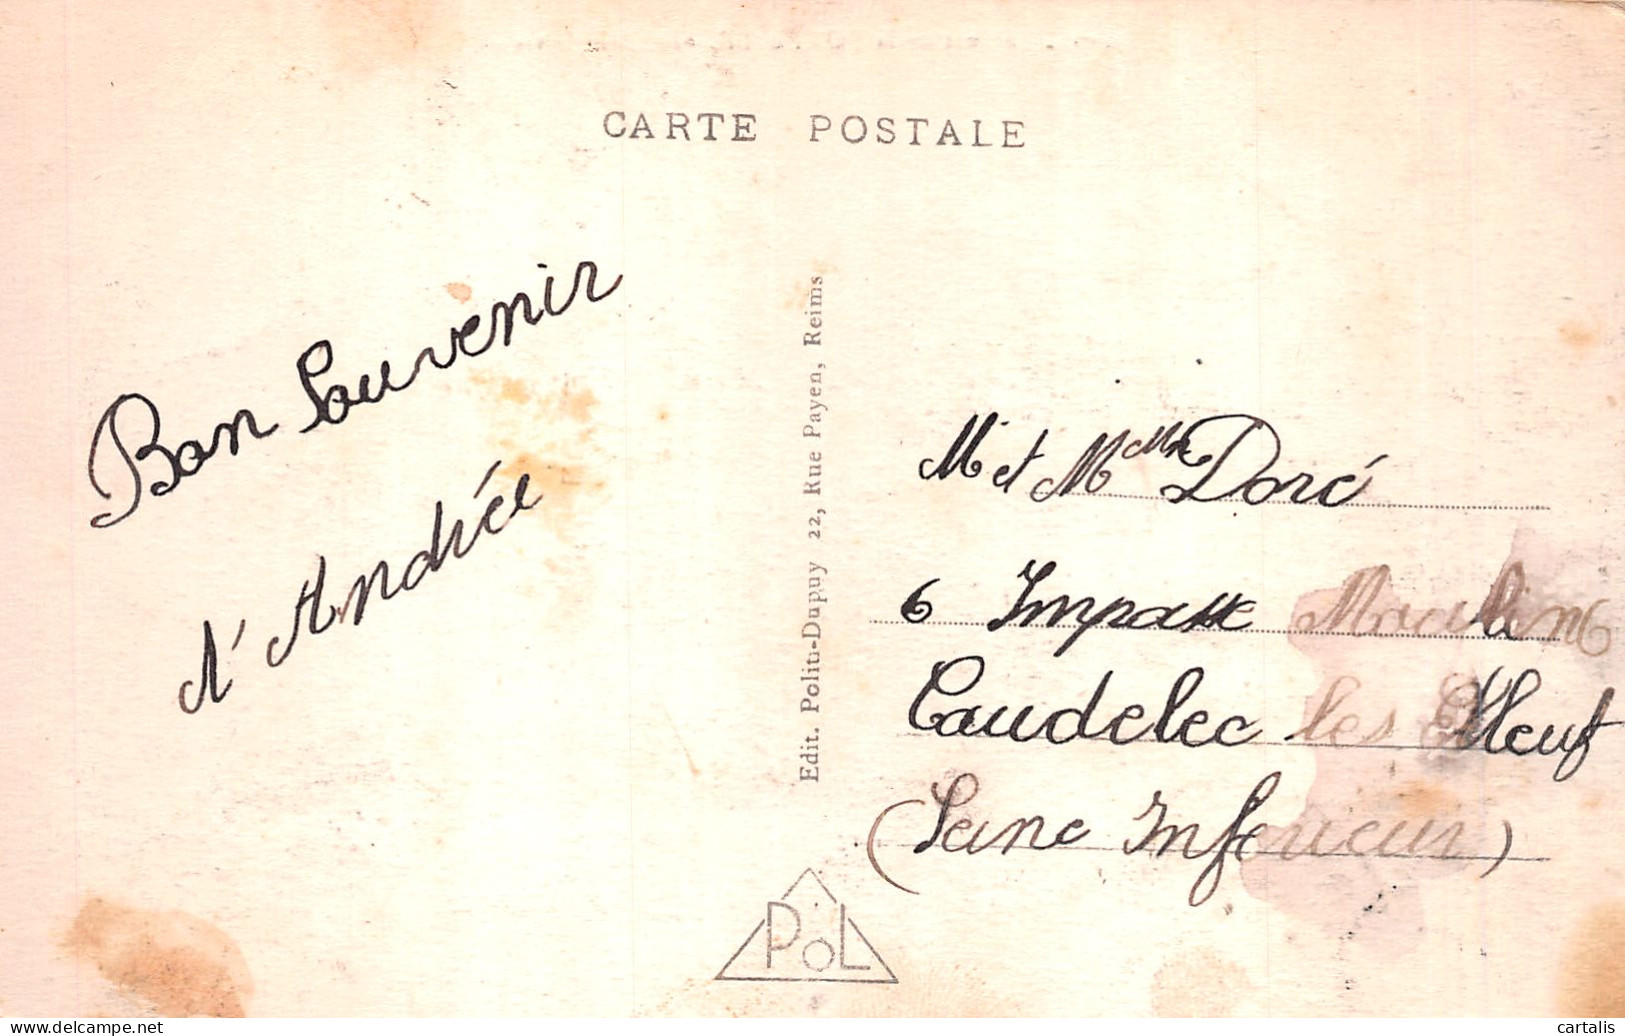 CARTE POSTALE
Bon Souvenir
d'Andrée
Edit. Politi-Dupuy 22, Rue Payen, Reims
M et Mme Doré
6 Impasse
Caudelec les
(Seine Inferieur)
POL
delcampe.net
cartalis